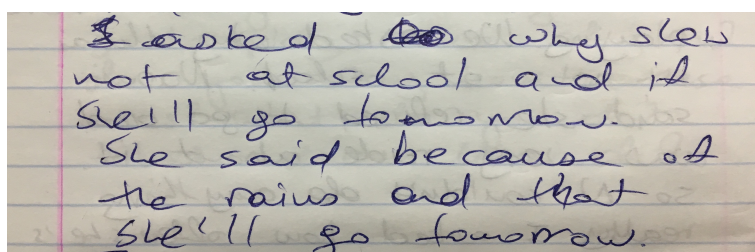 I asked why she's
not at school and if
she'll go tomorrow.
She said because of
the rains and that
she'll go tomorrow.